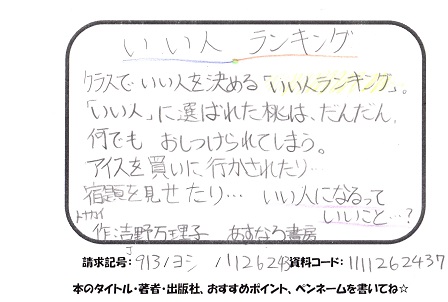 いい人 ランキング
クラスで いい人を決める「いい人ランキング」。
「いい人」に選ばれた桃は、だんだん、
何でも おしつけられてしまう。
アイスを買いに、行かされたり…
宿題を見せたり… いい人になるって
いいこと…?
作:吉野万理子 あすなろ書房
請求記号:913/ヨシ /11126243 資料コード:1111262437
本のタイトル・著者・出版社、おすすめポイント、ペンネームを書いてね☆